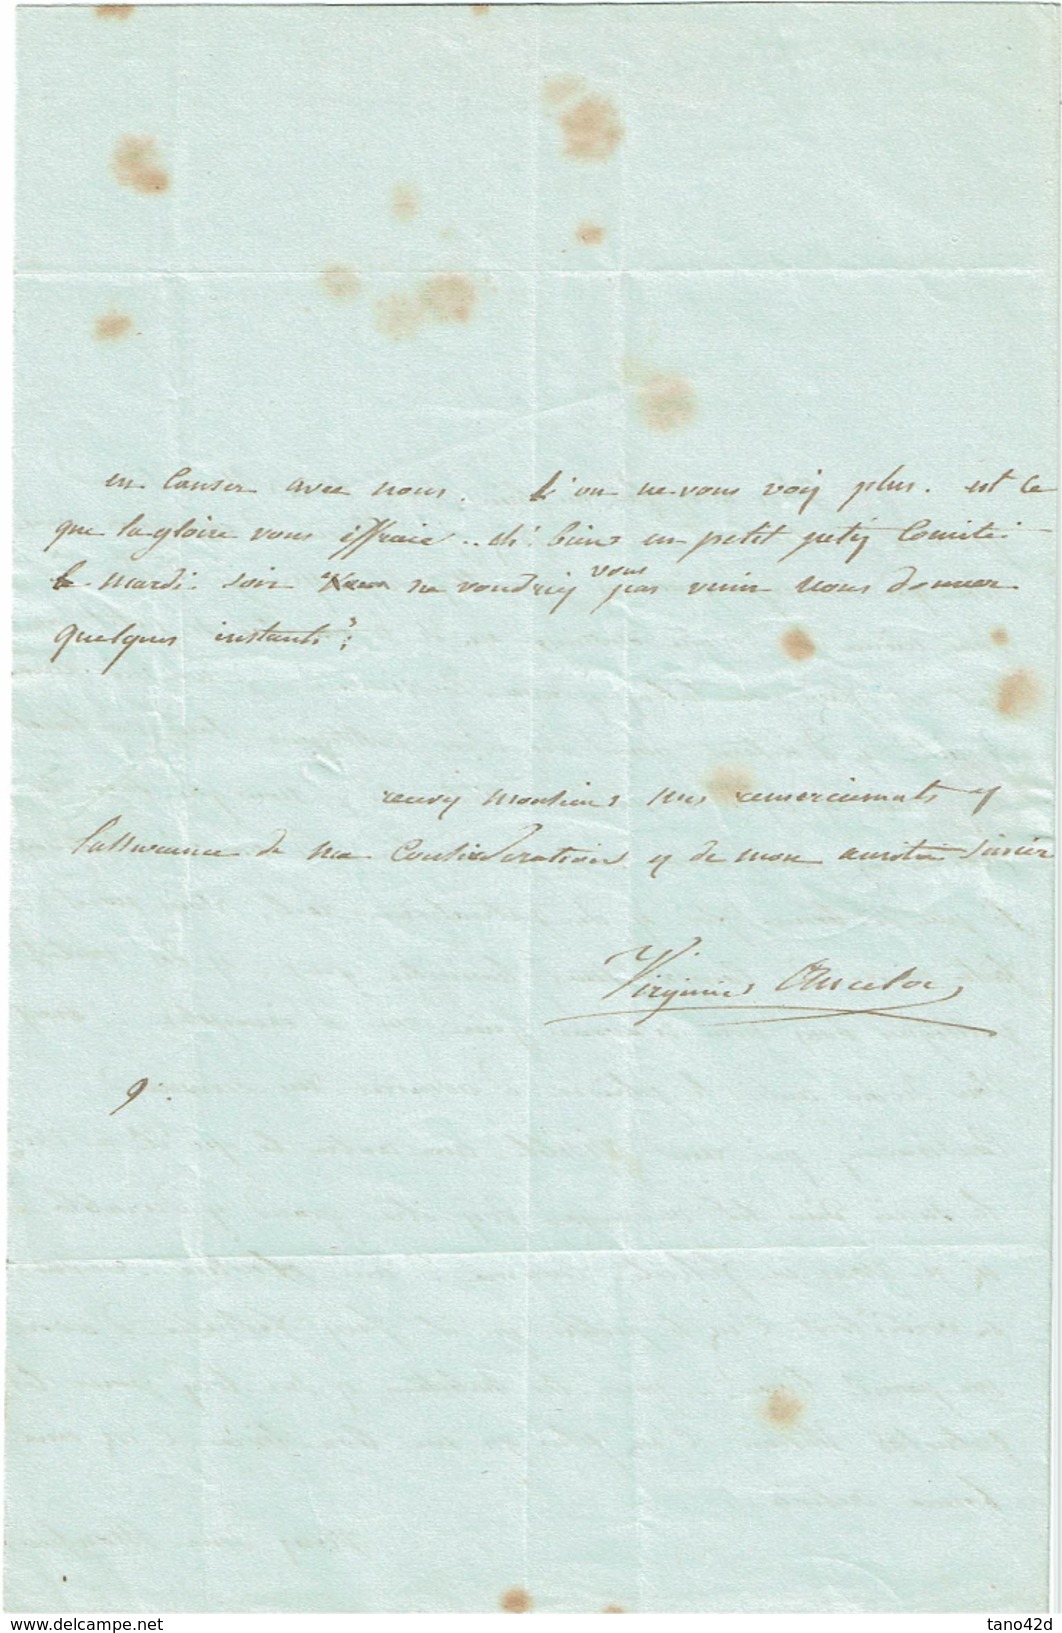 en causer avec nous. l'on ne vous voit plus. est ce
que la gloire vous effraie .. eh! bien en petit petit Comité
le mardi soir ne voudriez vous pas venir nous donner
quelques instants?
recevez Monsieur mes remerciements et
l'assurance de ma Considération et de mon amitié sincère
Virginie Ancelot
9.
www.delcampe.net
tano42d